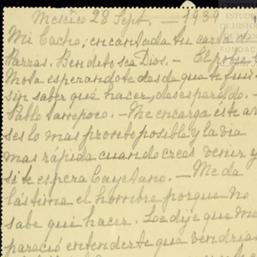 Mexico 28 Sept. — 1939
Mi Cacho; encantada tu carta de
Parras. Bendito sea Dios. — El
esperandote desde que te fuis
sin saber qué hacer, desesperado. —
Pablo — Me encarga éste a
ses lo mas pronto posible y la via
mas rápida cuando crees venir y
si te espera Cayetano. — Me da
lástima el hombre porque no
sabe qui hacer. Le dije que me
pareció entenderte que vendrias